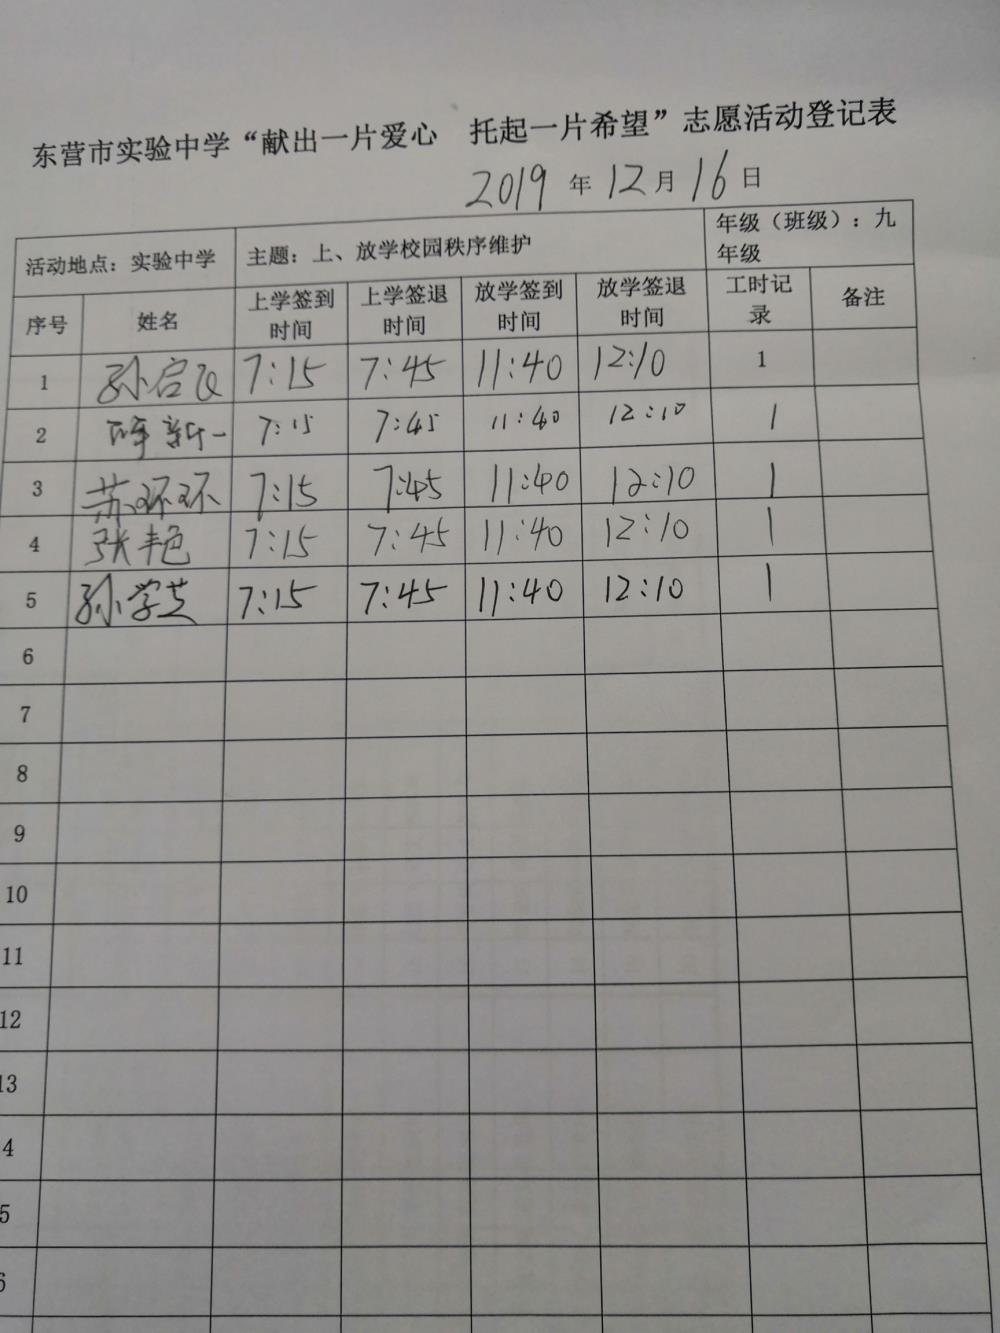 东营市实验中学“献出一片爱心 托起一片希望”志愿活动登记表
2019 年 12 月 16 日
活动地点：实验中学 主题：上、放学校园秩序维护 年级（班级）：九
年级
序号 姓名 上学签到 上学签退 放学签到 放学签退 工时记 备注
时间 时间 时间 时间 录
1 孙启 7:15 7:45 11:40 12:10 1
2 新一 7:15 7:45 11:40 12:10 1
3 苏环环 7:15 7:45 11:40 12:10 1
4 张丰艳 7:15 7:45 11:40 12:10 1
5 孙学芝 7:15 7:45 11:40 12:10 1
6
7
8
9
10
11
12
13
4
5
6